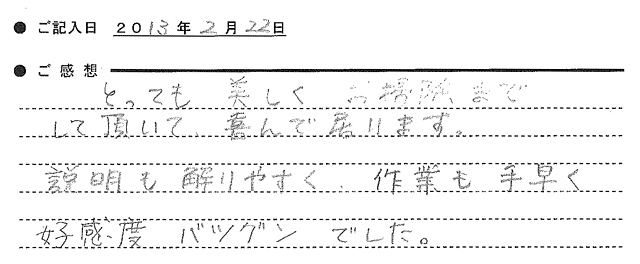 ● ご記入日 2013年2月22日
● ご感想
とっても 美しく お掃除まで
して頂いて、喜んで居ります。
説明も 解りやすく、作業も 手早く
好感度 バツグン でした。